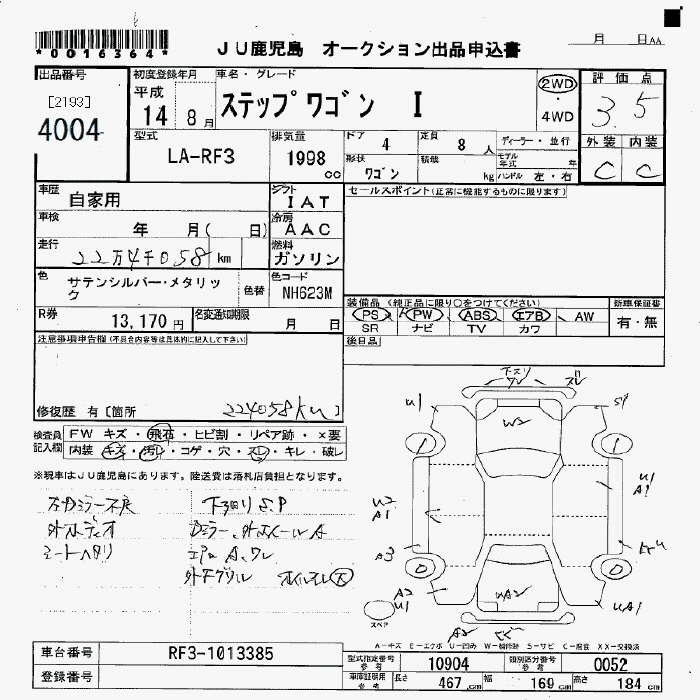 *0016364*
JU鹿児島 オークション出品申込書
月 日AA
出品番号
[2193]
4004
初度登録年月
平成
14 8月
車名・グレード
ステップワゴン I
2WD
4WD
評価点
3.5
型式
LA-RF3
排気量
1998
cc
ドア
4
定員
8人
ディーラー・並行
形状
ワゴン
積載
kg
モデル年式 年
ハンドル 左・右
外装 内装
C C
車歴
自家用
シフト
IAT
セールスポイント(正常に機能するものに限ります)
車検
年 月( 日)
冷房
AAC
走行
22万4千058 km
燃料
ガソリン
色
サテンシルバー・メタリック
色替
色コード
NH623M
装備品 (純正品に限り○をつけてください)
新車保証書
PS PW ABS エアB AW
SR ナビ TV カワ
有・無
R券
13,170円
名変通知期限
月 日
後日品
注意事項申告欄(不具合内容等は具体的に記入して下さい)
修復歴 有[箇所 224058km]
検査員記入欄
FW キズ・飛石・ヒビ割・リペア跡・×要
内装 キズ・汚レ・コゲ・穴・スレ・キレ・破レ
※現車はJU鹿児島にあります。陸送費は落札店負担となります。
外オーディオ
シートヘタリ
エアロ A、ワレ
U1
S1
W2
1
1
U2
A1
U1
A1
A3
0
0
A2
U1
UA2
UA1
スペア
A-キズ E-エクボ U-凹み W-補修跡 S-サビ C-腐食 XX-交換済
車台番号
RF3-1013385
登録番号
型式指定番号
参考
10904
類別区分番号
参考
0052
車庫証明用
参考
長さ
467 cm
幅
169 cm
高さ
184 cm